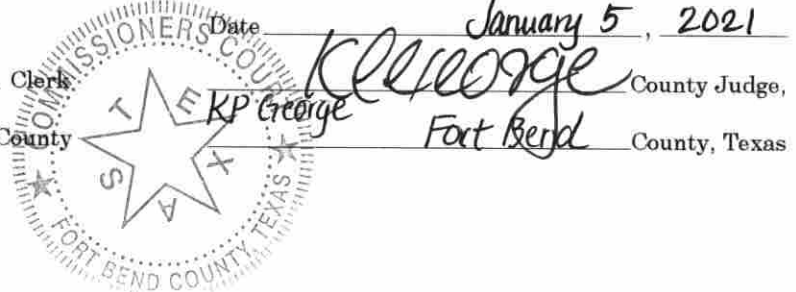 Date January 5, 2021
Clerk KP George County Judge,
County Fort Bend County, Texas
COMMISSIONERS COURT
TEXAS
FORT BEND COUNTY, TEXAS